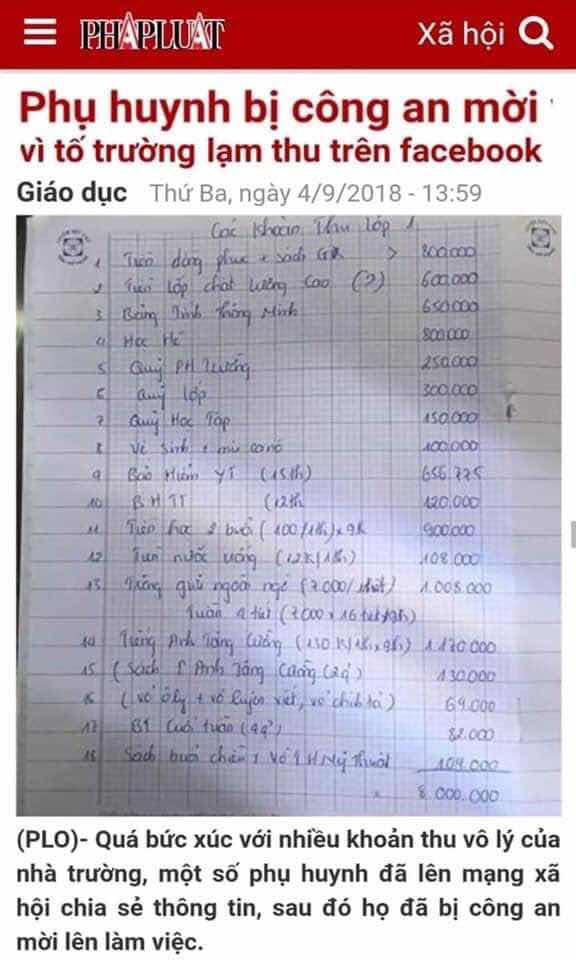 PHÁPLUẬT Xã hội
Phụ huynh bị công an mời
vì tố trường lạm thu trên facebook
Giáo dục Thứ Ba, ngày 4/9/2018 - 13:59
Các khoản Thu lớp 1
1 Tiền đồng phục + sách GK 800.000
2 Tiền lớp chất lượng cao (?) 600.000
3 Bảng Tính Thông Minh 650.000
4 Học Hè 800.000
5 Quỹ PH Trường 250.000
6 Quỹ lớp 300.000
7 Quỹ Học Tập 150.000
8 Vệ sinh + 100.000
9 Bảo Hiểm YT (15th) 656.775
10 BHTT (12th 120.000
11 Tiền học 2 buổi (100/1th) x 9th 900.000
12 Tiền nước uống (12k/1th) 108.000
13 Tiếng ngoại ngữ (7.000/tiết) 1.008.000
Tuần 4 tiết (7.000 x 16 tiết
14 Tiếng Anh Tăng Cường (130k/1th x 9th) 1.170.000
15 (Sách T Anh Tăng Cường (2q) 130.000
16 (vở ô ly + vở luyện viết, vở chính tả) 69.000
17 BT Cuối tuần (4q) 82.000
18 Sách buổi chiều + vở Mỹ Thuật 104.000
8.000.000
(PLO)- Quá bức xúc với nhiều khoản thu vô lý của
nhà trường, một số phụ huynh đã lên mạng xã
hội chia sẻ thông tin, sau đó họ đã bị công an
mời lên làm việc.